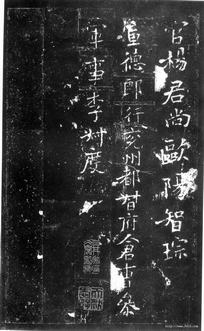 官楊君尚歐陽智琮
宣德郎行兗州都督府倉曹參
軍事李
度